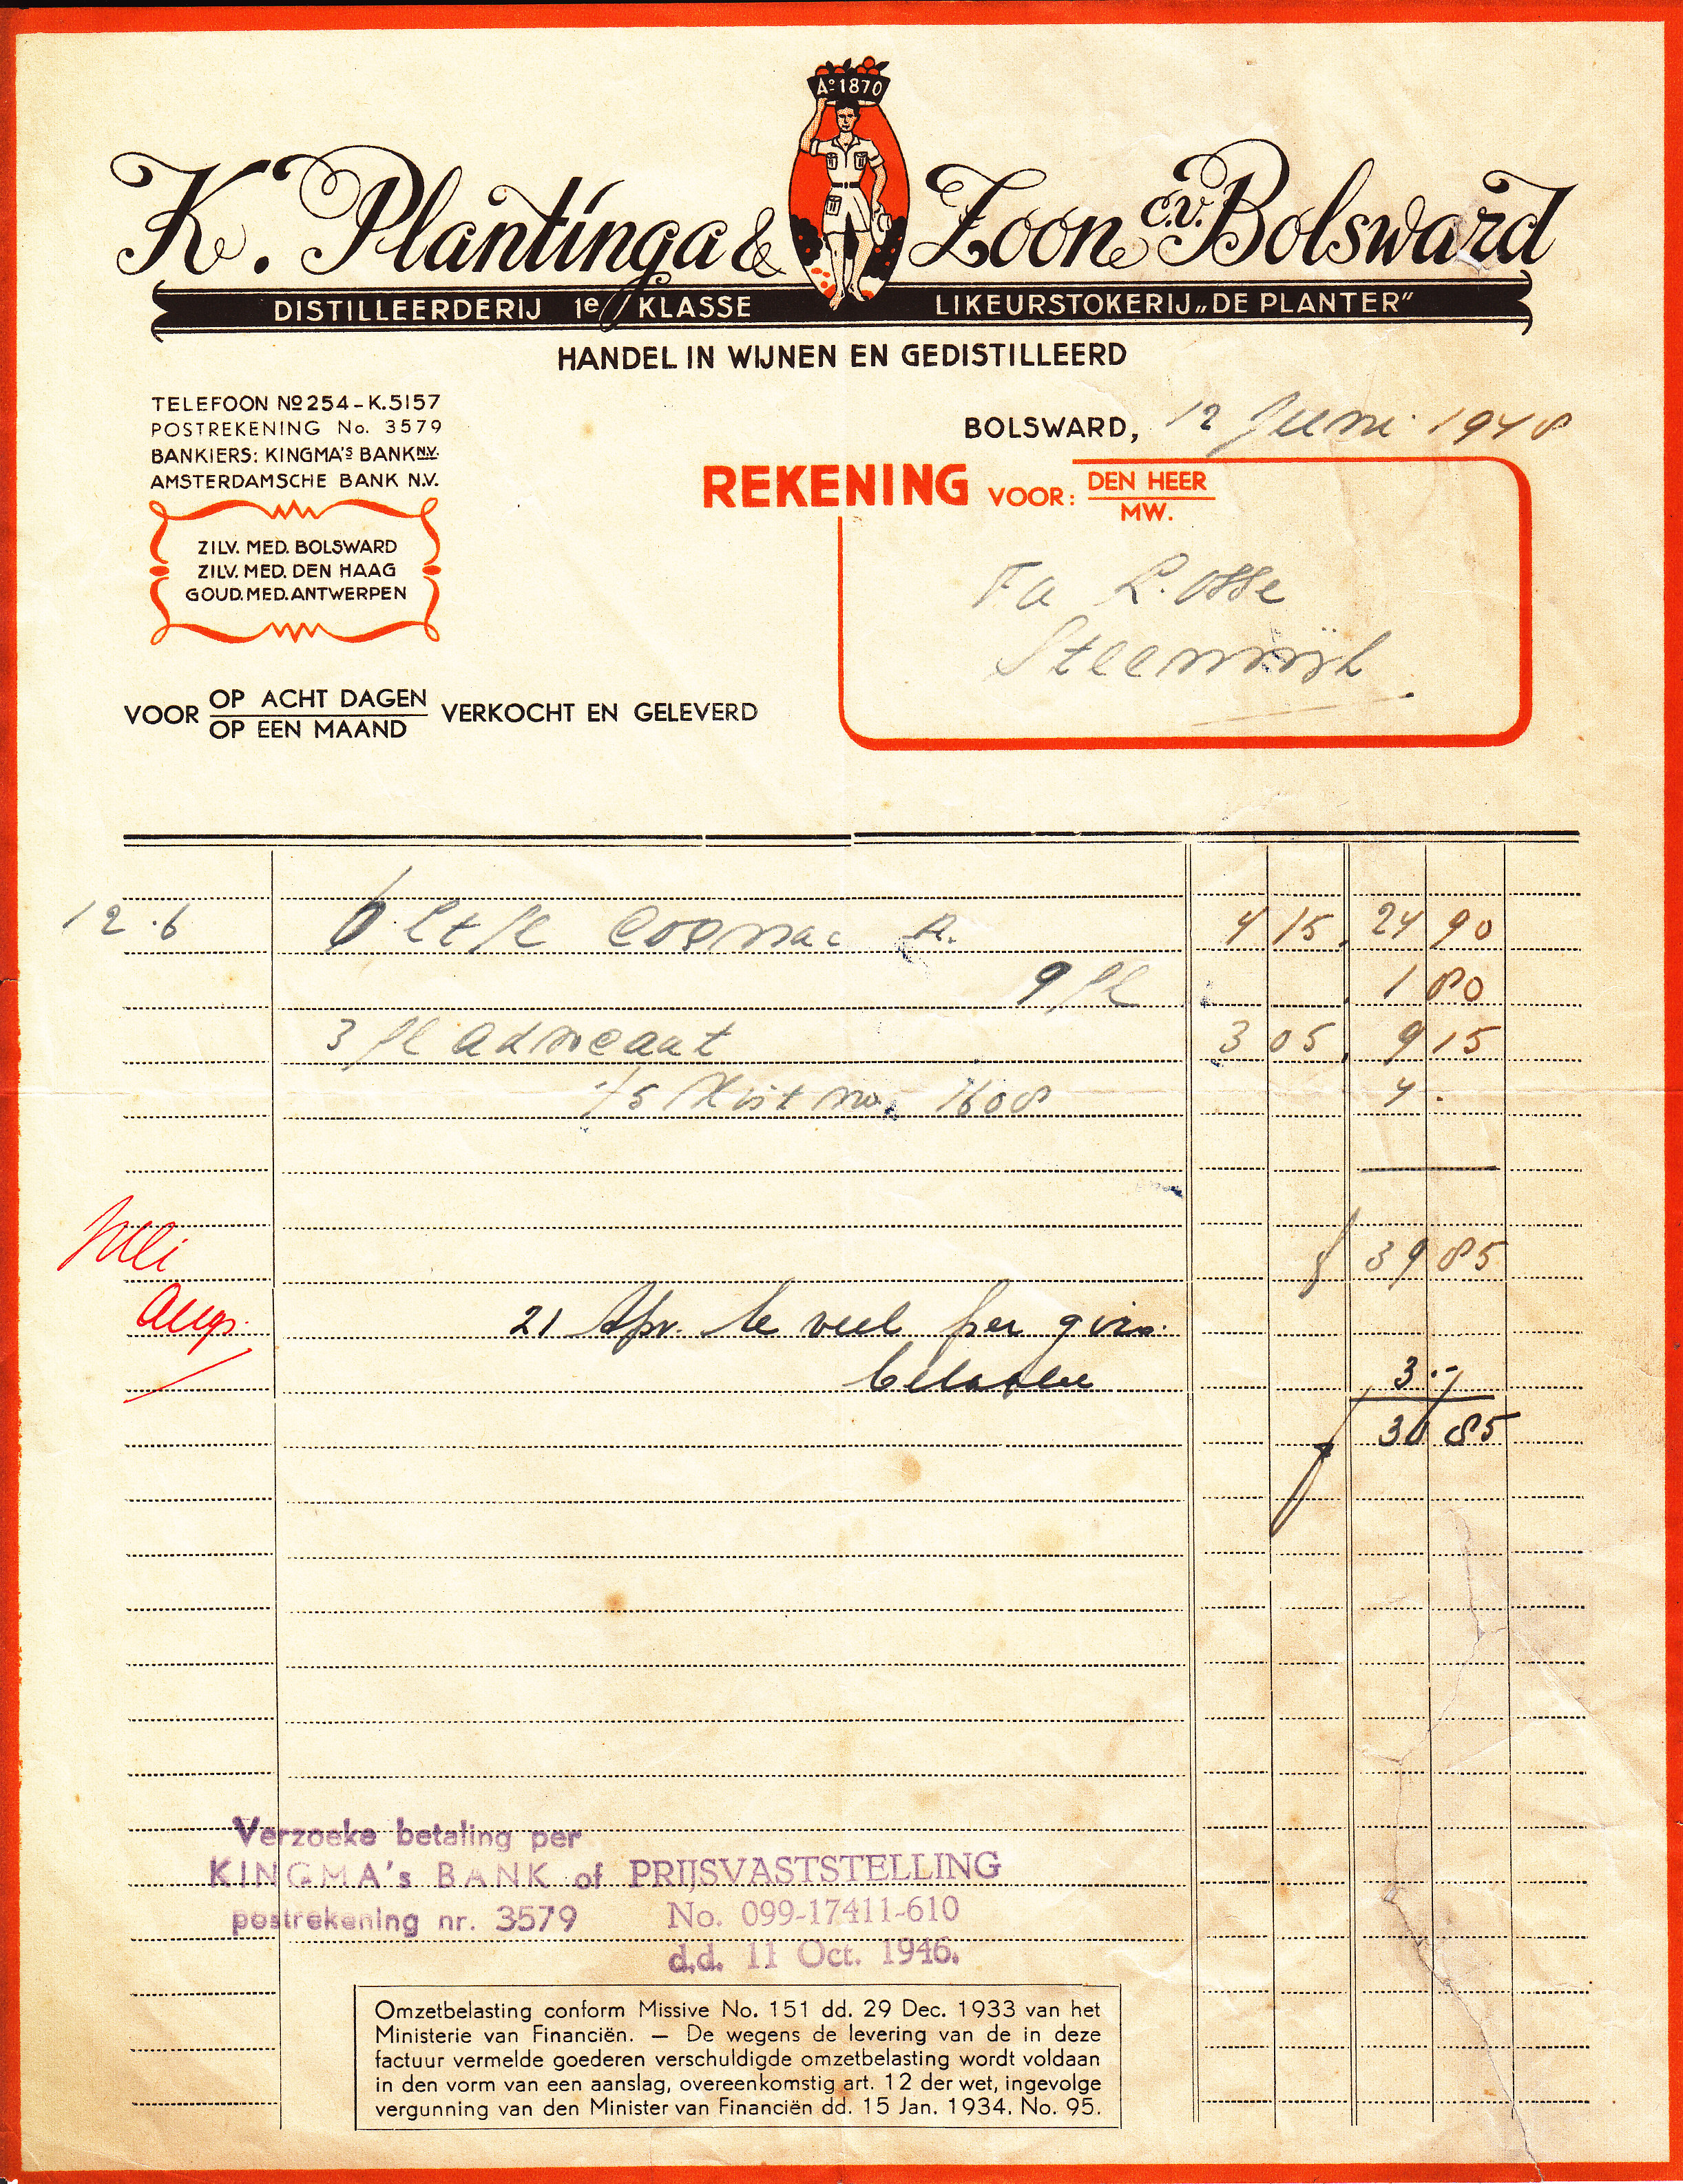 Aº 1870
K. Plantinga & Zoon c.v. Bolsward
DISTILLEERDERIJ 1e KLASSE LIKEURSTOKERIJ „DE PLANTER”
HANDEL IN WIJNEN EN GEDISTILLEERD
TELEFOON Nº 254-K.5157
POSTREKENING No. 3579
BANKIERS: KINGMA'S BANK N.V.
AMSTERDAMSCHE BANK N.V.
ZILV. MED. BOLSWARD
ZILV. MED. DEN HAAG
GOUD. MED. ANTWERPEN
BOLSWARD, 12 Juni 1948
REKENING VOOR: DEN HEER
MW.
Fa R. Osse
Steenwijk
VOOR OP ACHT DAGEN VERKOCHT EN GELEVERD
OP EEN MAAND
12.6 6 lt fl cognac 4 15 24 90
9 fl 1 80
3 fl advocaat 3 05 9 15
Kist no. 1608 4.
f 39 85
Juli
Aug. 21 Apr. te veel per giro
betaald 3.-
f 85
Verzoeke betaling per
KINGMA's BANK of
postrekening nr. 3579
PRIJSVASTSTELLING
No. 099-17411-610
d.d. 11 Oct. 1946.
Omzetbelasting conform Missive No. 151 dd. 29 Dec. 1933 van het
Ministerie van Financiën. — De wegens de levering van de in deze
factuur vermelde goederen verschuldigde omzetbelasting wordt voldaan
in den vorm van een aanslag, overeenkomstig art. 12 der wet, ingevolge
vergunning van den Minister van Financiën dd. 15 Jan. 1934. No. 95.